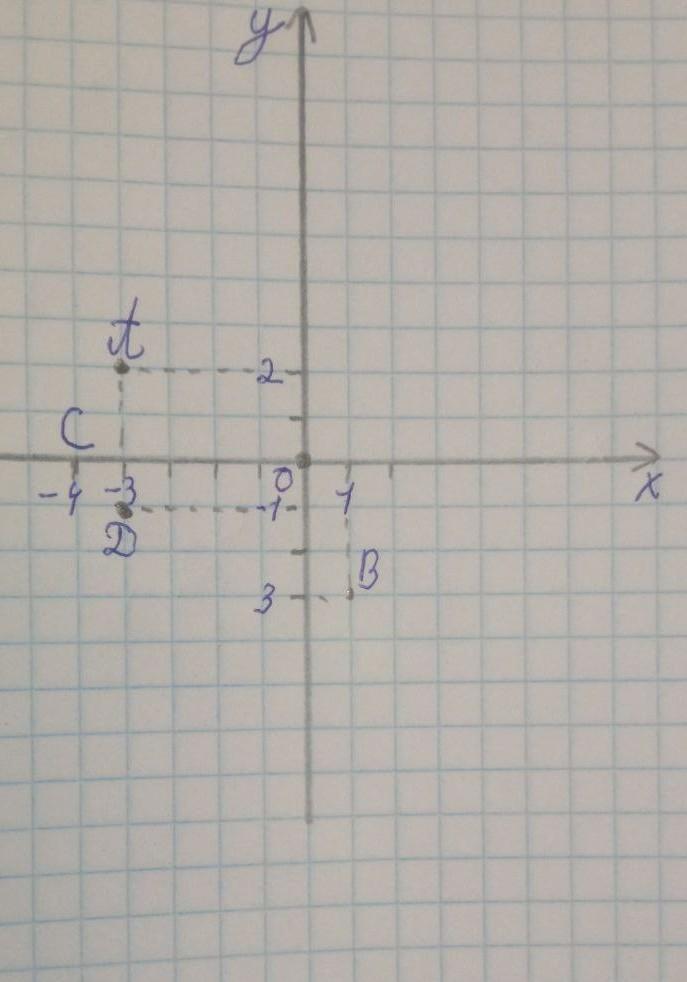 y
A
2
C
0
x
-4 -3
-1
1
D
B
3